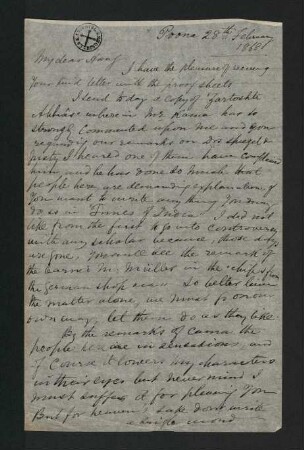 Poona 28th February
My dear Haug
I have the pleasure of receiving
Your kind letter with the proof sheets
I send to day a copy of Zartoshti
Abhiase wherein Mr Kama has so
strongly commented upon me and you
regarding our remarks on Drs Spiegel &
one of them have
him, and he has done so much that
people here are demanding explanation, if
You want to write any thing you may
do so in Times of India. I did not
like from the first to go into controversy
with any scholar because those days
are gone. You will see the remark of
the learned M. Müller in the chips from
the German shop. So better leave
the matter alone, we must go on our
own way, let them do as they like
By the remarks of Cama the
people here are in sensations and
of course it lowers my characters
in their eyes but never mind I
must suffer it for pleasing You
But for heaven's sake dont write
a single word